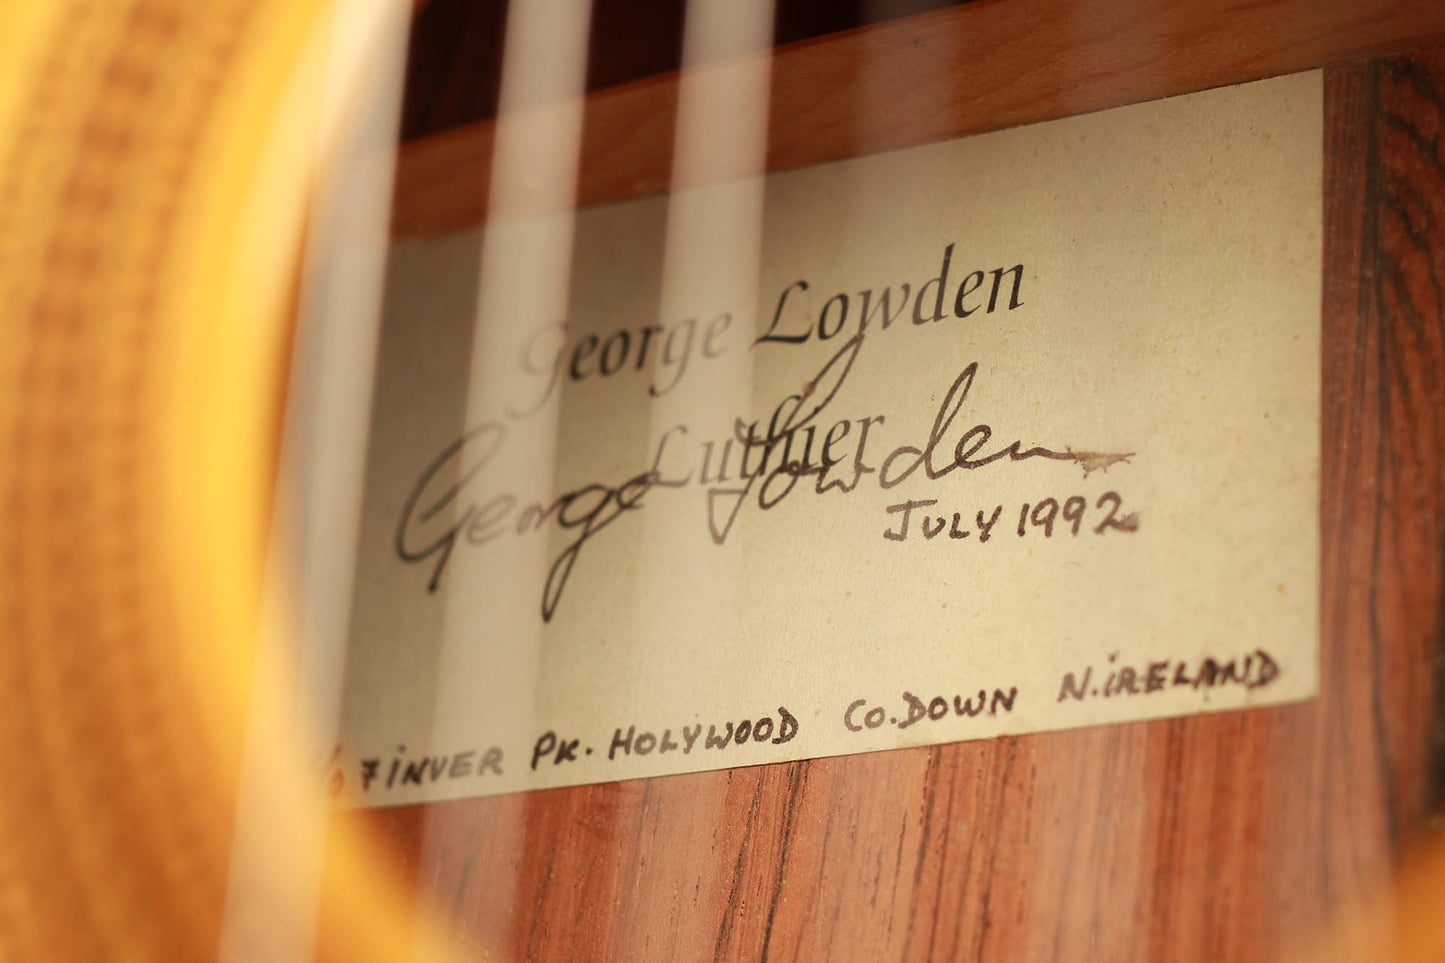 George Lowden
Luthier
George Lowden
JULY 1992
INVER PK. HOLYWOOD CO. DOWN N. IRELAND